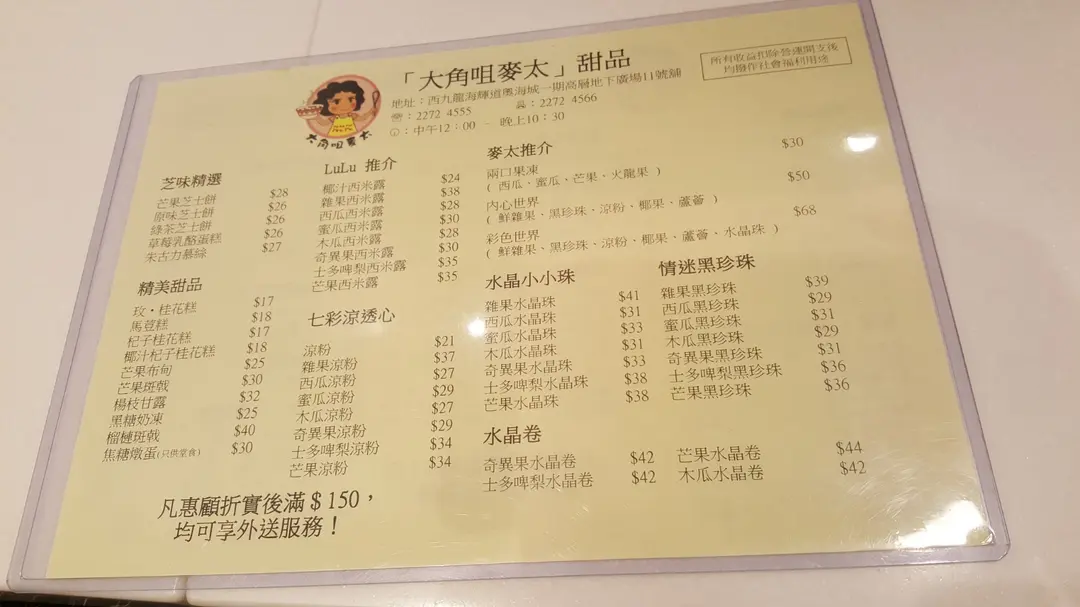 「大角咀麥太」甜品
地址：西九龍海輝道奧海城一期高層地下廣場11號舖
☎：2272 4555 2272 4566
中午12：00 － 晚上10：30
所有收益扣除營運開支後
均撥作社會福利用途
大角咀麥太
芝味精選
芒果芝士餅 $28
原味芝士餅 $26
綠茶芝士餅 $26
草莓乳酪蛋糕 $26
朱古力慕絲 $27
精美甜品
玫・桂花糕 $17
馬荳糕 $18
杞子桂花糕 $17
椰汁杞子桂花糕 $18
芒果布甸 $25
芒果班戟 $30
楊枝甘露 $32
黑糖奶凍 $25
榴槤班戟 $40
焦糖燉蛋(只供堂食) $30
LuLu 推介
椰汁西米露 $24
雜果西米露 $38
西瓜西米露 $28
蜜瓜西米露 $30
木瓜西米露 $28
奇異果西米露 $30
士多啤梨西米露 $35
芒果西米露 $35
七彩涼透心
涼粉 $21
雜果涼粉 $37
西瓜涼粉 $27
蜜瓜涼粉 $29
木瓜涼粉 $27
奇異果涼粉 $29
士多啤梨涼粉 $34
芒果涼粉 $34
麥太推介
兩口果凍 $30
( 西瓜．蜜瓜、芒果、火龍果 )
內心世界 $50
( 鮮雜果、黑珍珠、涼粉、椰果、蘆薈 )
彩色世界 $68
( 鮮雜果、黑珍珠、涼粉、椰果、蘆薈、水晶珠 )
水晶小小珠
雜果水晶珠 $41
西瓜水晶珠 $31
蜜瓜水晶珠 $33
木瓜水晶珠 $31
奇異果水晶珠 $33
士多啤梨水晶珠 $38
芒果水晶珠 $38
情迷黑珍珠
雜果黑珍珠 $39
西瓜黑珍珠 $29
蜜瓜黑珍珠 $31
木瓜黑珍珠 $29
奇異果黑珍珠 $31
士多啤梨黑珍珠 $36
芒果黑珍珠 $36
水晶卷
奇異果水晶卷 $42 芒果水晶卷 $44
士多啤梨水晶卷 $42 木瓜水晶卷 $42
凡惠顧折實後滿＄150，
均可享外送服務！